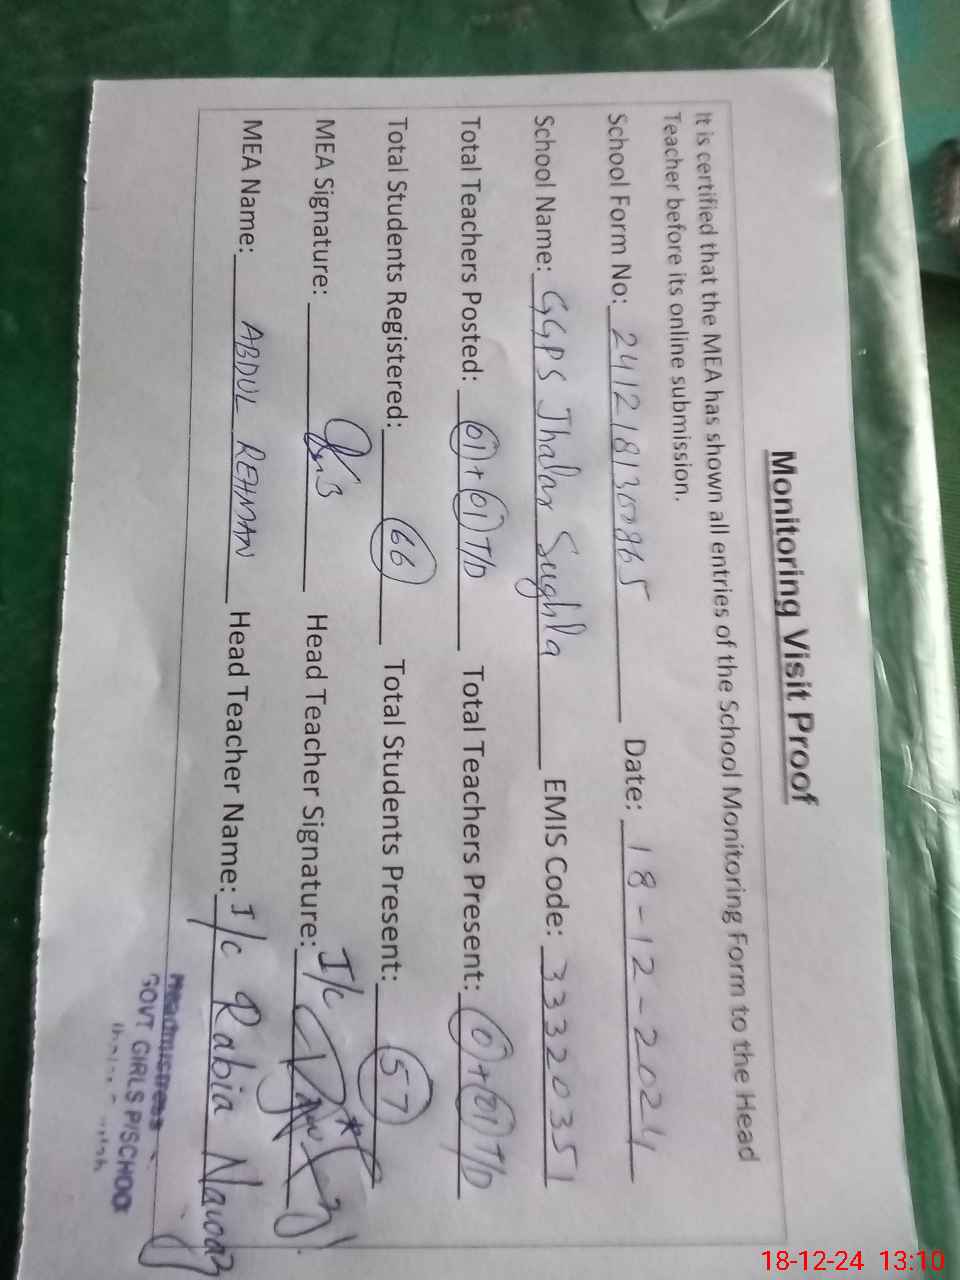 Monitoring Visit Proof
It is certified that the MEA has shown all entries of the School Monitoring Form to the Head
Teacher before its online submission.
School Form No: Date: 18-12-2024
School Name: GGPS Jhalar EMIS Code: 33320351
Total Teachers Posted: 01+01 T/D Total Teachers Present: 0+01 T/D
Total Students Registered: 66 Total Students Present: 57
MEA Signature: Head Teacher Signature: I/c
MEA Name: ABDUL REHMAN Head Teacher Name: I/c Rabia Nawaz
Headmistress
GOVT GIRLS P/SCHOO
18-12-24 13:10